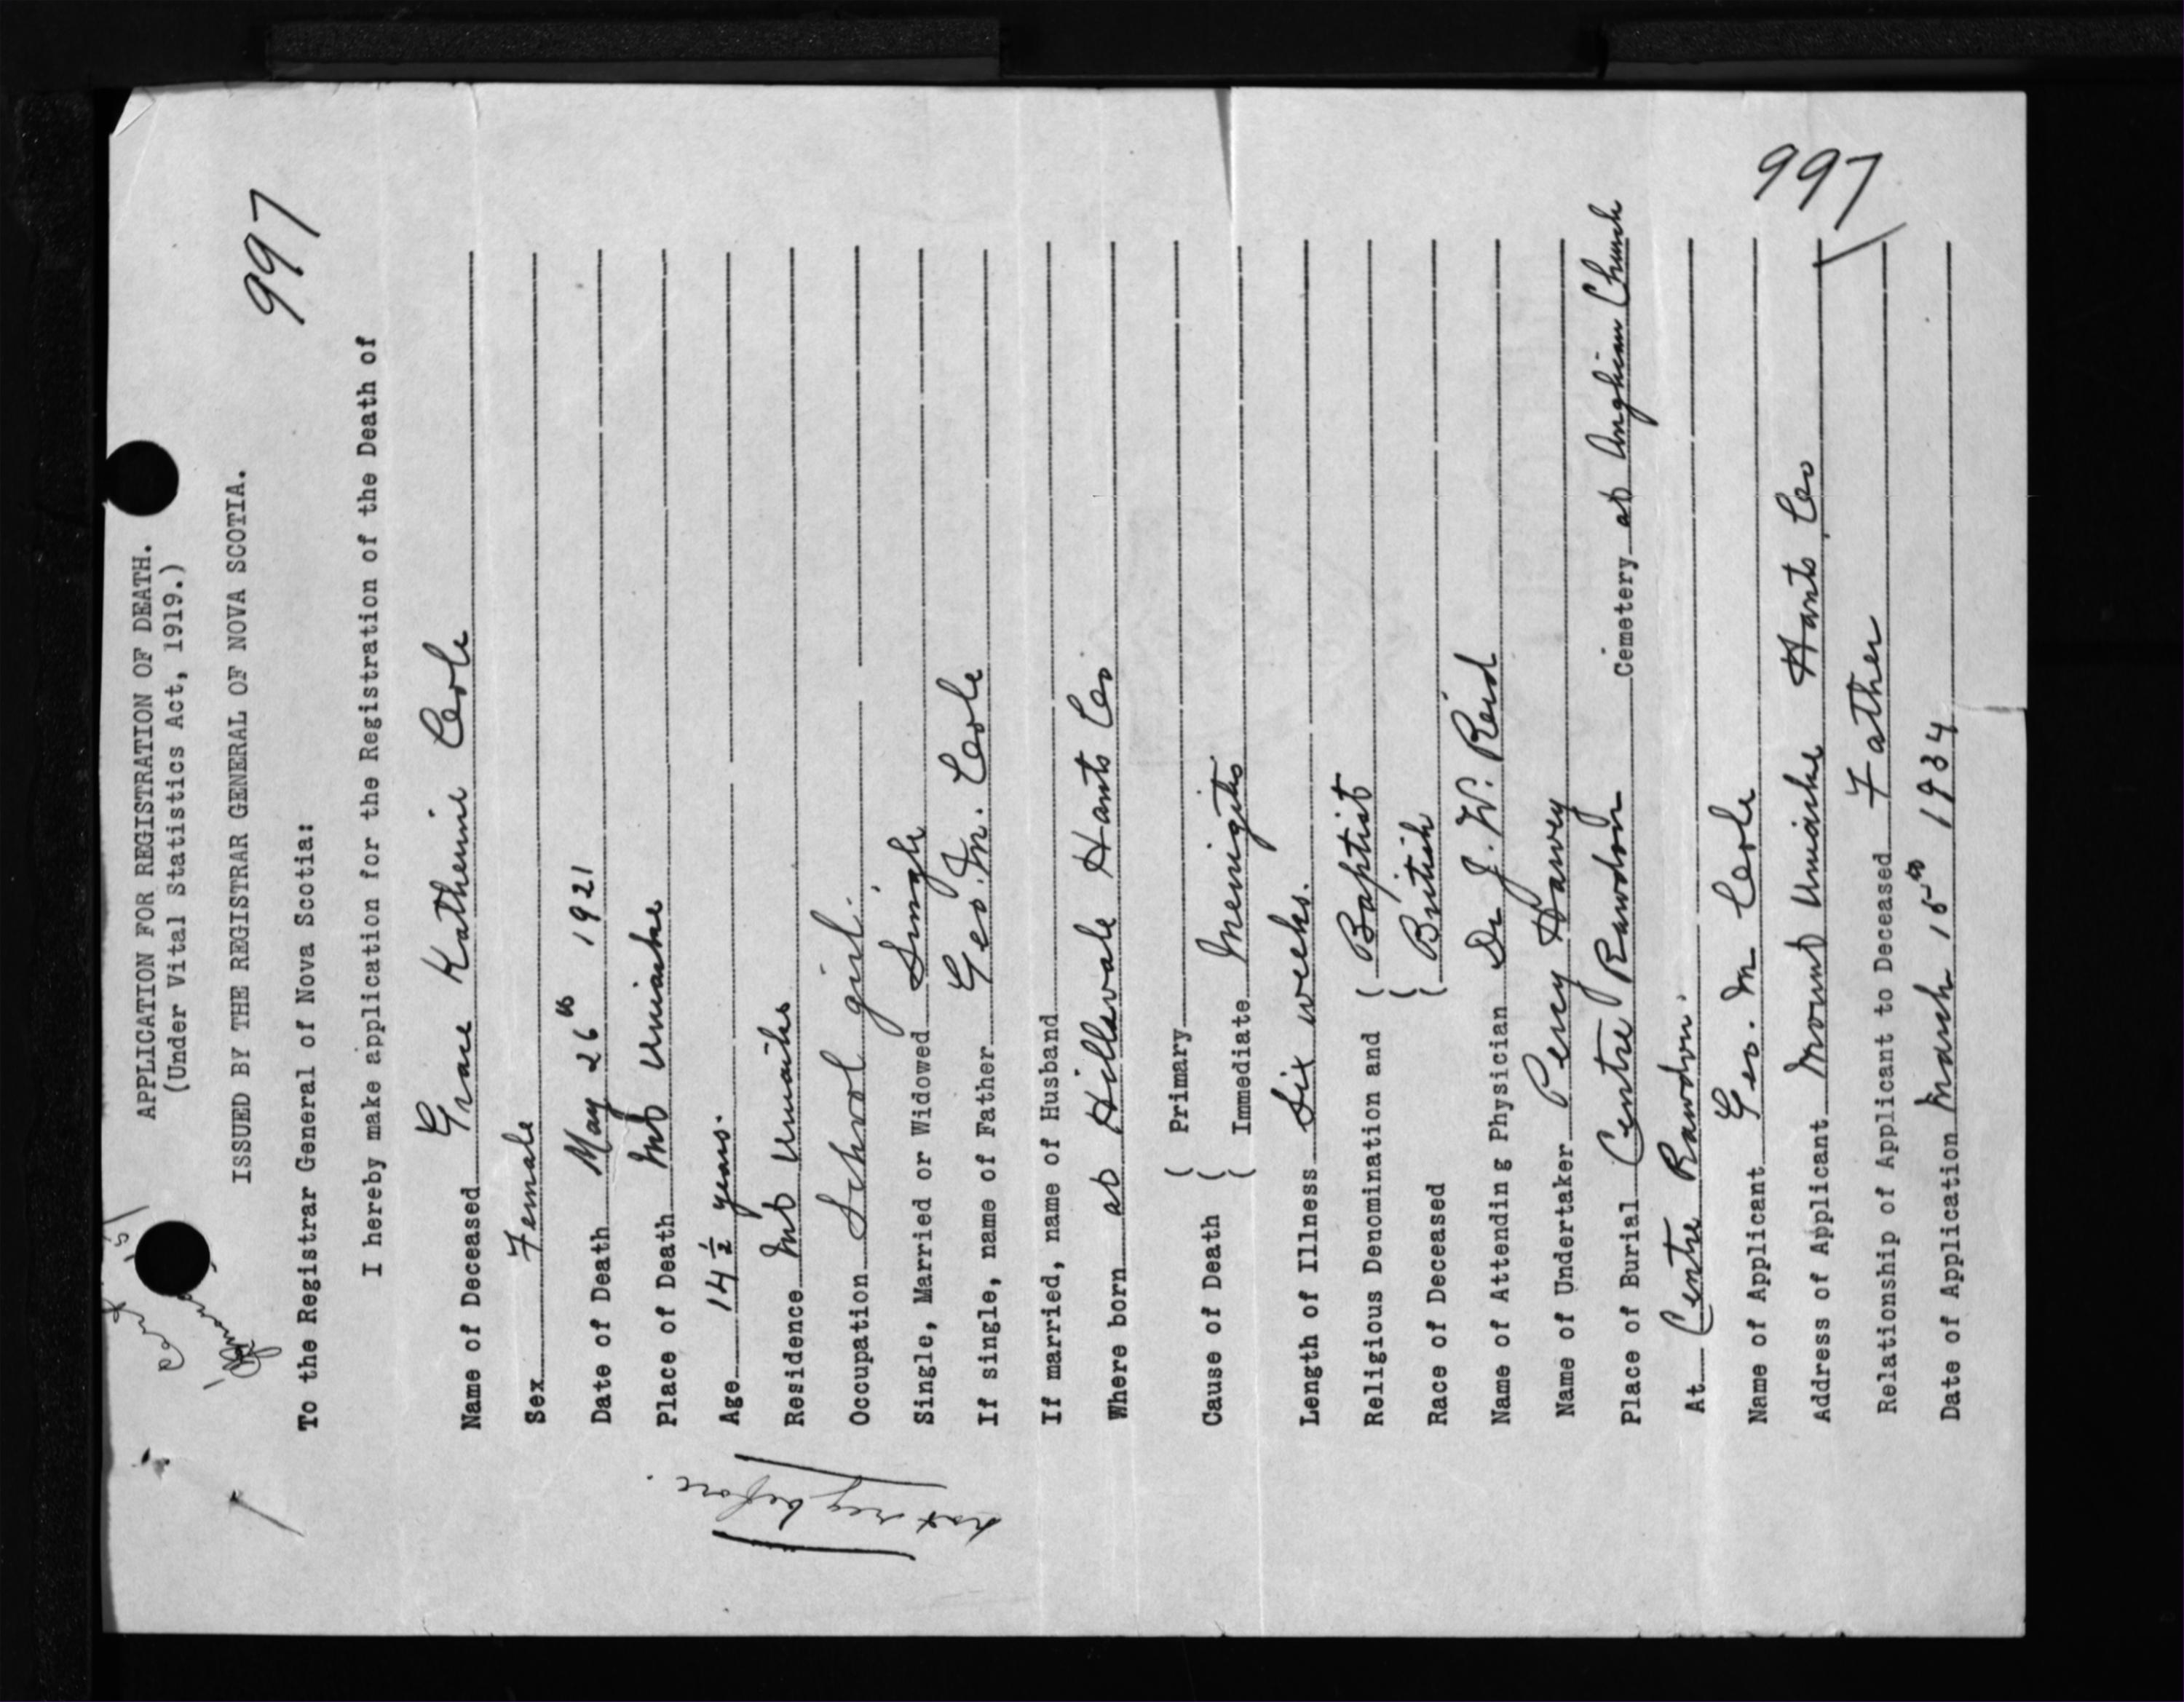 APPLICATION FOR REGISTRATION OF DEATH.
(Under Vital Statistics Act, 1919.)
ISSUED BY THE REGISTRAR GENERAL OF NOVA SCOTIA.
997
To the Registrar General of Nova Scotia:
I hereby make application for the Registration of the Death of
Name of Deceased Grace Katherine Cole
Sex Female
Date of Death May 26th 1921
Place of Death Mt Uniacke
Age 14 1/2 years.
Residence Mt Uniacke
Occupation School girl.
Single, Married or Widowed Single
If single, name of Father Geo. M. Cole
If married, name of Husband
Where born at Hillsvale Hants Co
Cause of Death ( Primary
( Immediate Meningitis
Length of Illness Six weeks.
Religious Denomination and ( Baptist
(
Race of Deceased ( British
Name of Attending Physician Dr J. W. Reid
Name of Undertaker Percy Harvey
Place of Burial Centre Rawdon Cemetery at Anglican Church
At Centre Rawdon.
Name of Applicant Geo. M Cole
Address of Applicant Mount Uniacke Hants Co
997
Relationship of Applicant to Deceased Father
Date of Application March 15th 1934
not reg before.